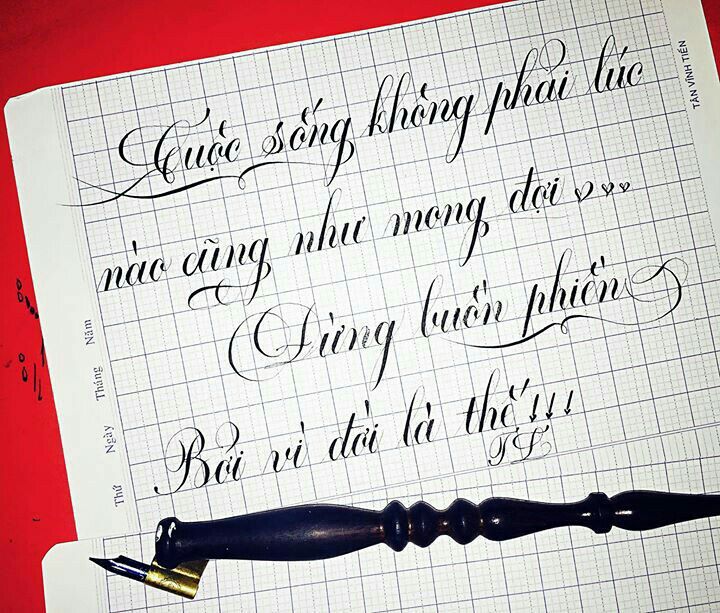 Cuộc sống không phải lúc
nào cũng như mong đợi ♡♡♡...
Đừng buồn phiền
Bởi vì đời là thế!!!
TL
TÂN VĨNH TIẾN
Thứ Ngày Tháng Năm